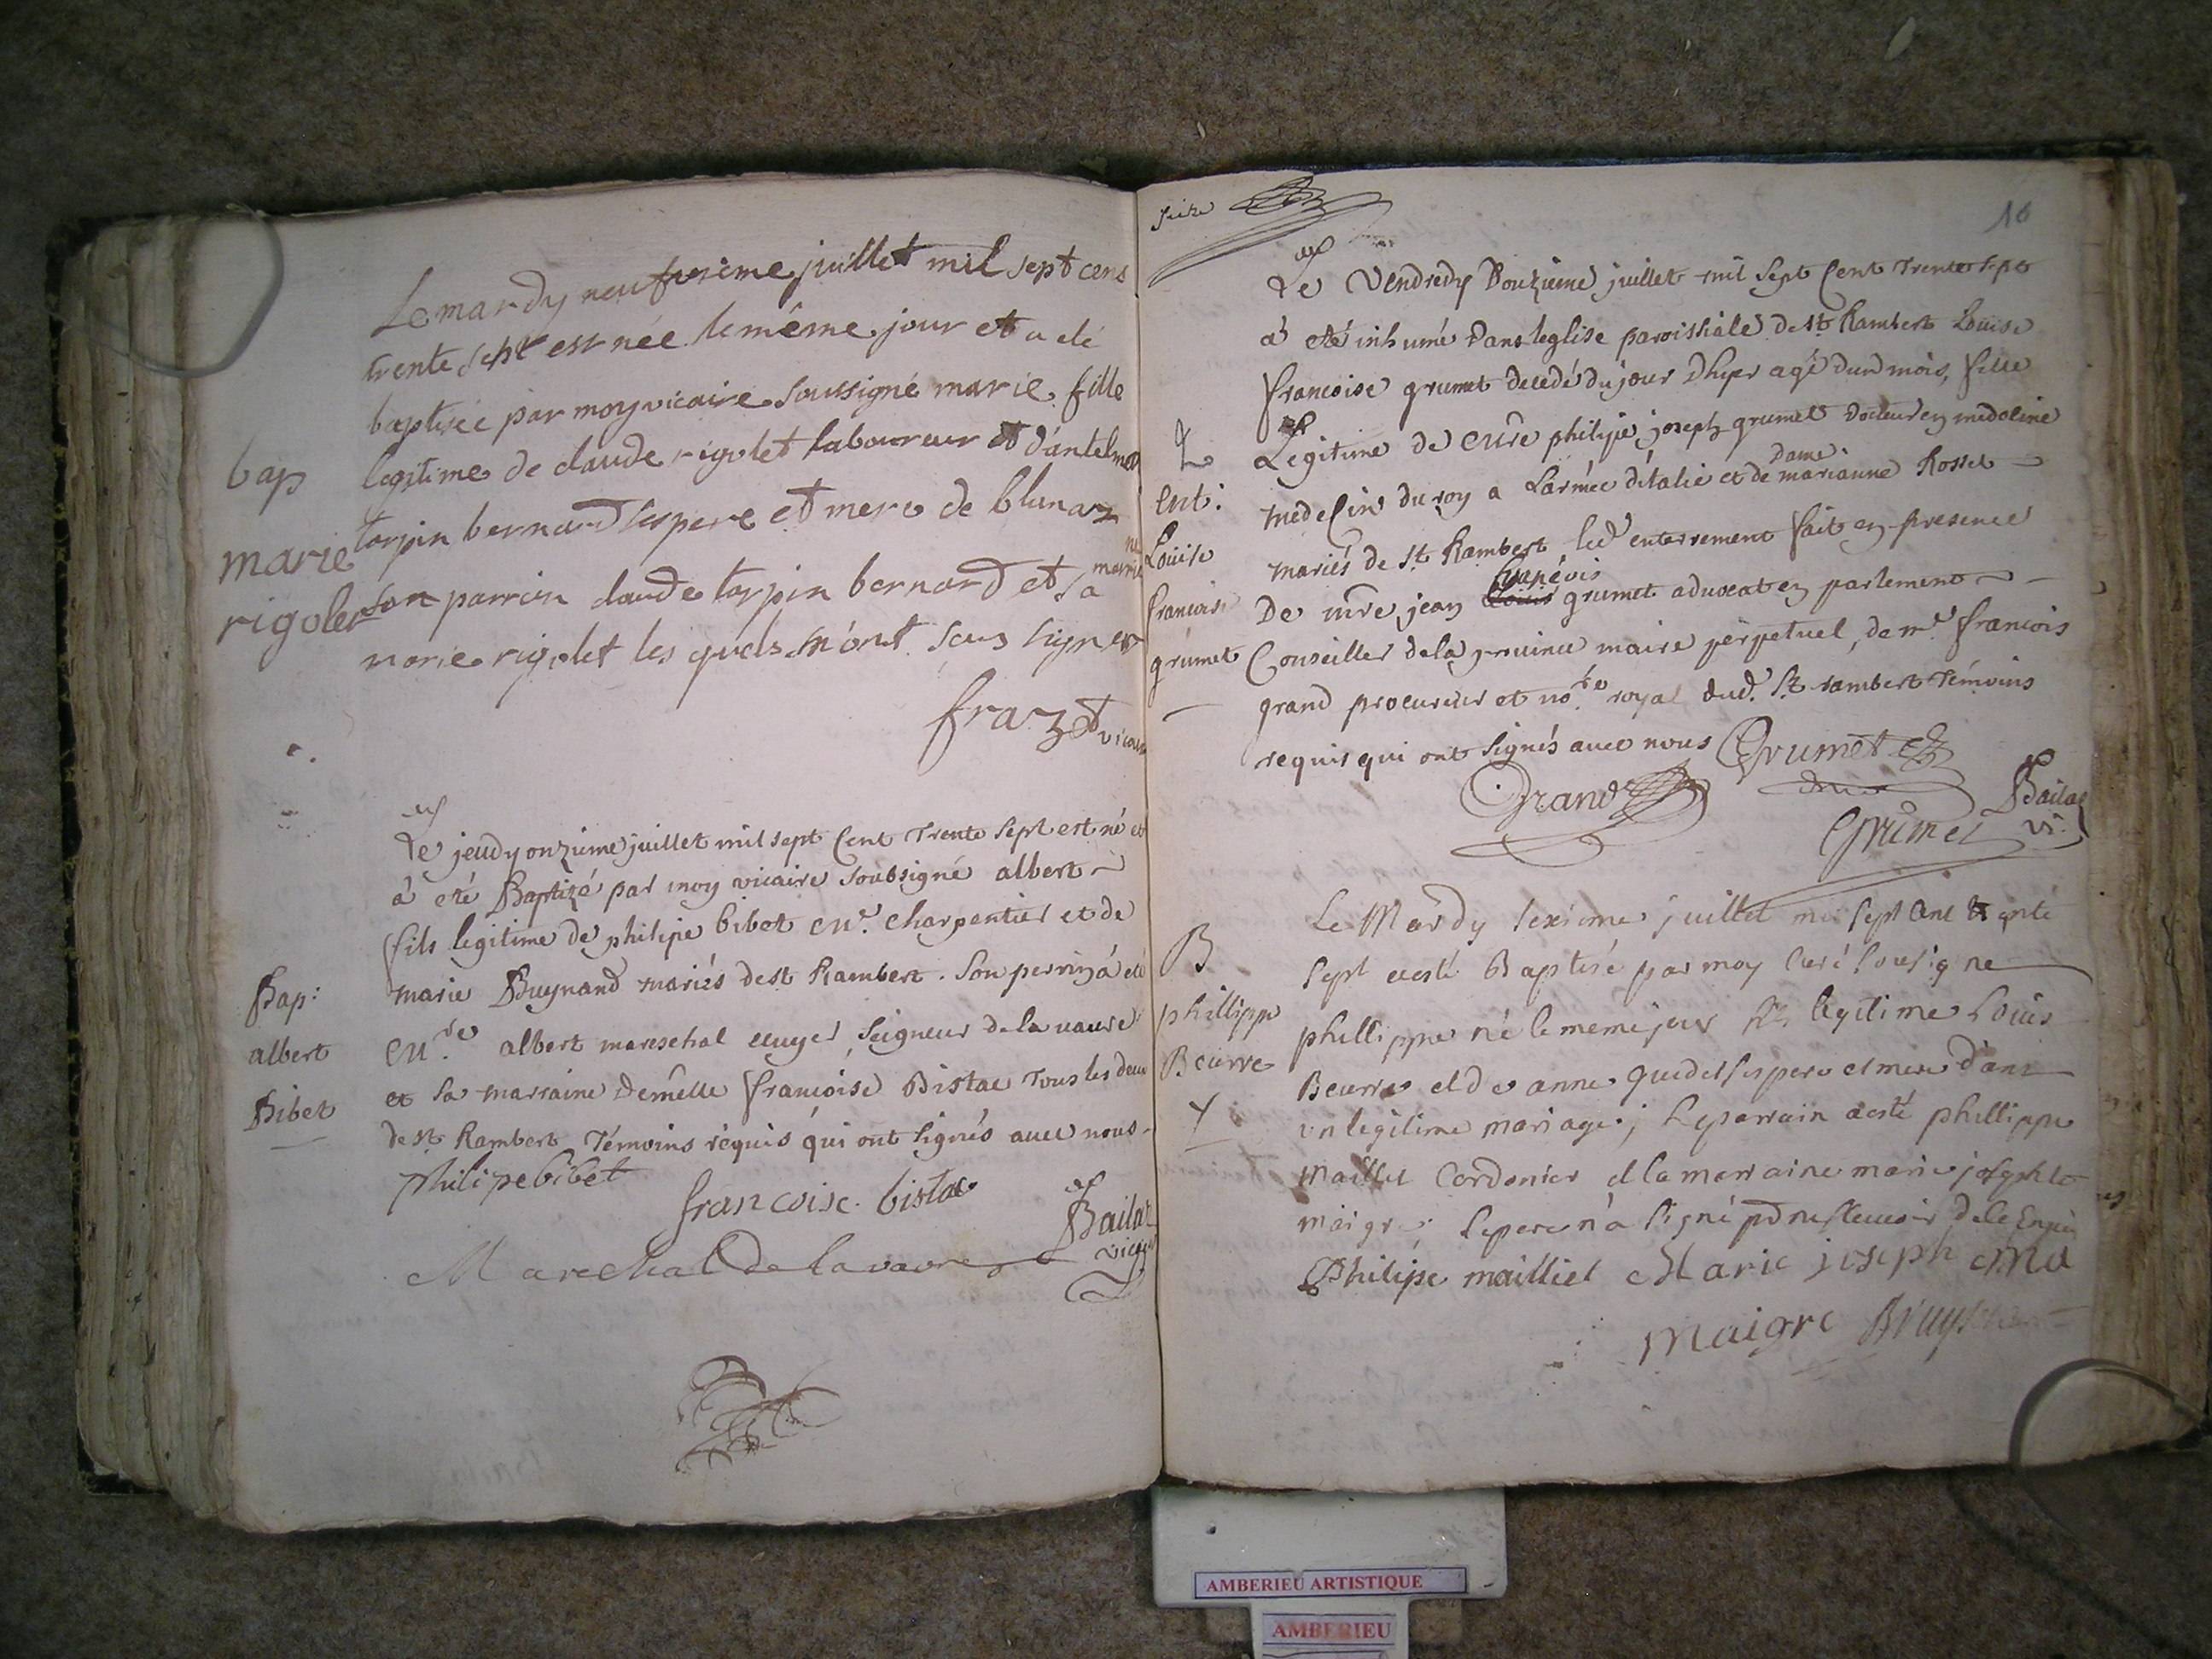 Le mardy neufvieme juillet mil sept cens
trente sept est née le même jour et a eté
baptisée par moy vicaire soussigné marie fille
bap
legitime de claude rigolet laboureur et d'antelmet
marie
tarpin bernard ses pere et mere de blanaz
rigolet
son parrein claude tarpin bernard et sa marreine
marie rigolet les quels n'ont sous signer
frazet vicaire
Le jeudy onzieme juillet mil sept Cent Trente sept est né et
à eté Baptizé par moy vicaire soubsigné albert
fils legitime de philipe bibet me. charpentier et de
Bap:
marie Buynand mariés de st Rambert. Son perrin á eté
albert
albert mareschal ecuyer, seigneur de la vavre
Bibet
et sa marraine Demelle francoise Bistac Tous les deux
de st Rambert Témoins requis qui ont signés avec nous
philipe bibet
francoise. bistac
Bailat
vicaire
Marechal De la vavre
Suite
16
Le Vendredy Douzieme juillet mil Sept Cent Trente sept
à eté inhumé Dans l'eglise paroissiale de st Rambert Louise
francoise grumet decedé du jour Dhyer agé d'un mois, fille
Legitime de philipe joseph grumet Docteur en medecine
ent:
medecin du roy a L'armée d'italie et de dame marianne Rosset
Louise
mariés de st. Rambert, led enterrement fait en presence
francoise
De jean grumet advocat en parlement
grumet
Conseiller de la province maire perpetuel, de me. francois
grand procureur et no.re royal dud. St rambert Témoins
requis qui ont signés avec nous Grumet
Grand
Grumet
Bailat
vi.
Le Mardy sexieme juillet mil sept Cent trente
B
sept a esté Baptisé par moy Curé sousigne
phillippe
phillippe né le meme jour fils legitime Louis
Beurre
Beurre et de anne ses pere et mere dans
un legitime mariage; Le parrain a esté phillippe
maillet Cordonier et la marraine marie josephte
maigre; le pere n'a signé
Philipe mailliet Marie joseph Ma
Maigre
AMBERIEU ARTISTIQUE
AMBERIEU